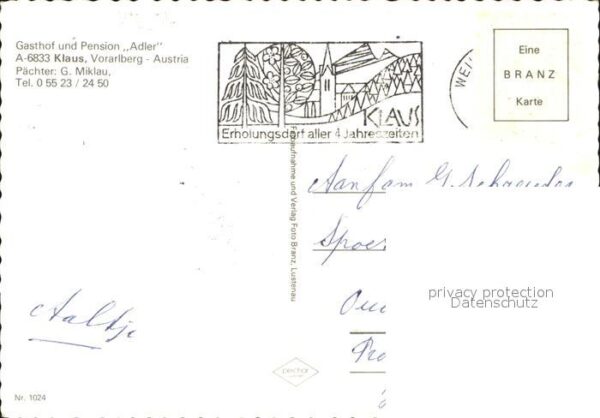 Gasthof und Pension „Adler"
A-6833 Klaus, Vorarlberg - Austria
Pächter: G. Miklau,
Tel. 0 55 23 / 24 50
KLAUS
Erholungsdorf aller 4 Jahreszeiten
WEI
Eine
BRANZ
Karte
Farbaufnahme und Verlag Foto Branz, Lustenau
Aan fam G. Schroeder
privacy protection
Datenschutz
Aaltje
pechar
Nr. 1024